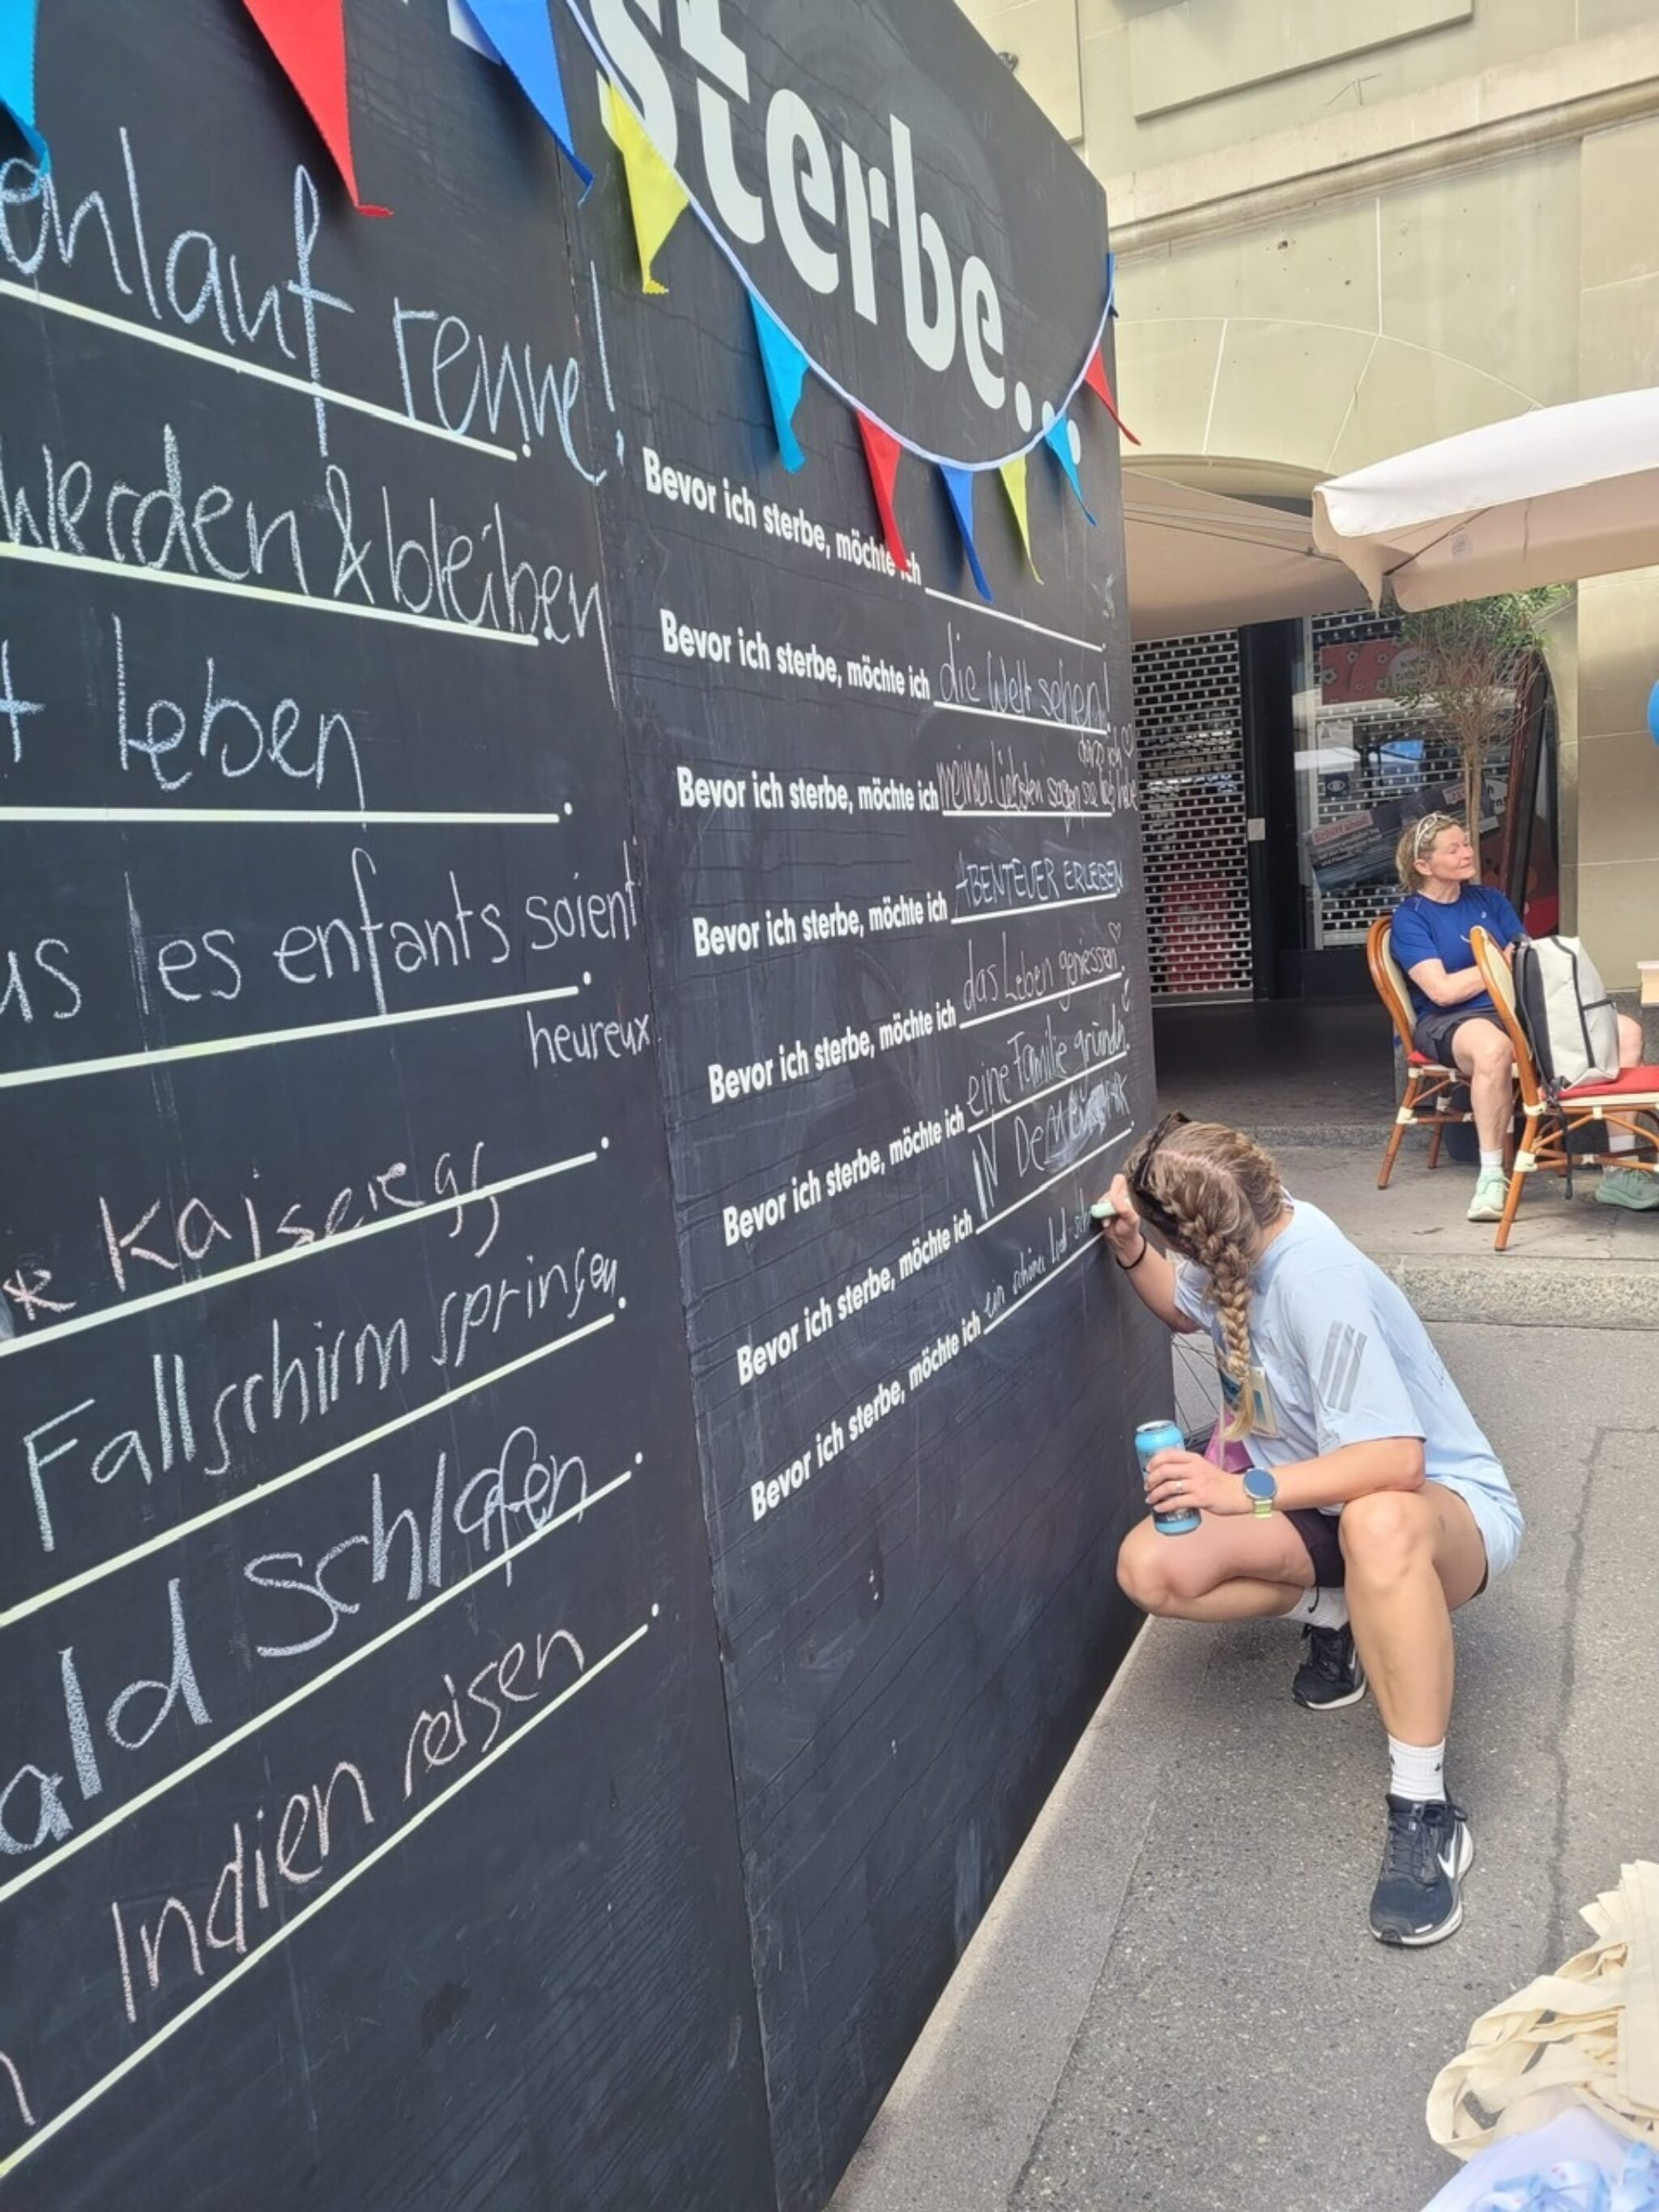 sterbe...
enlauf renne!
werden & bleiben
t leben
us les enfants soient
heureux
* Kaiseregg
Fallschirm springen
ald schlafen
Indien reisen
Bevor ich sterbe, möchte ich
Bevor ich sterbe, möchte ich die Welt sehen!
Bevor ich sterbe, möchte ich meinen liebsten sagen
Bevor ich sterbe, möchte ich ABENTEUER ERLEBEN
Bevor ich sterbe, möchte ich das Leben geniessen
Bevor ich sterbe, möchte ich eine Familie gründn
Bevor ich sterbe, möchte ich IN
Bevor ich sterbe, möchte ich ein schönes Lied